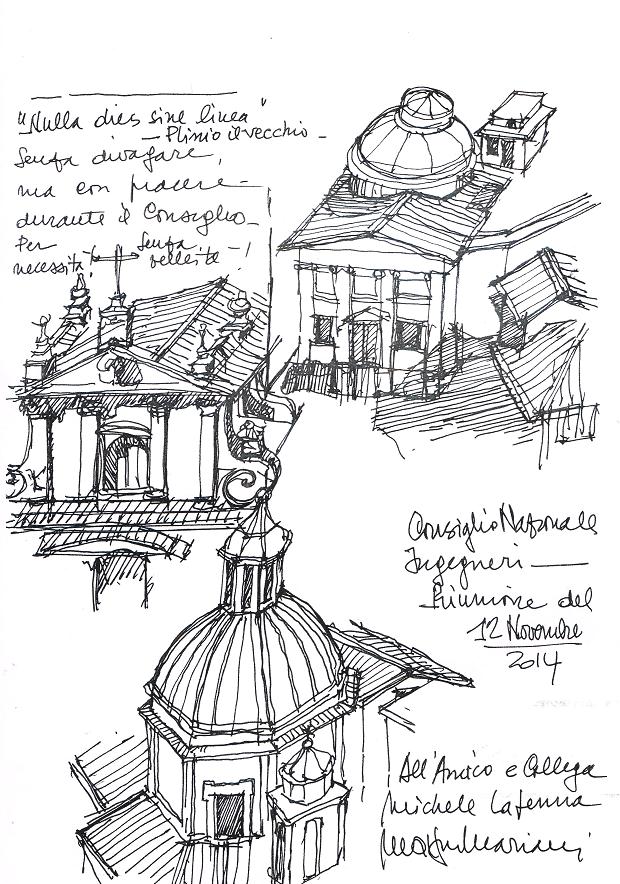 "Nulla dies sine linea"
— Plinio il vecchio —
Senza divagare,
ma con piacere —
durante il Consiglio —
Per
necessità! Senza
velleità —!
Consiglio Nazionale
Ingegneri —
Riunione del
12 Novembre
2014
All'Amico e Collega
Michele Lapenna
Mariani